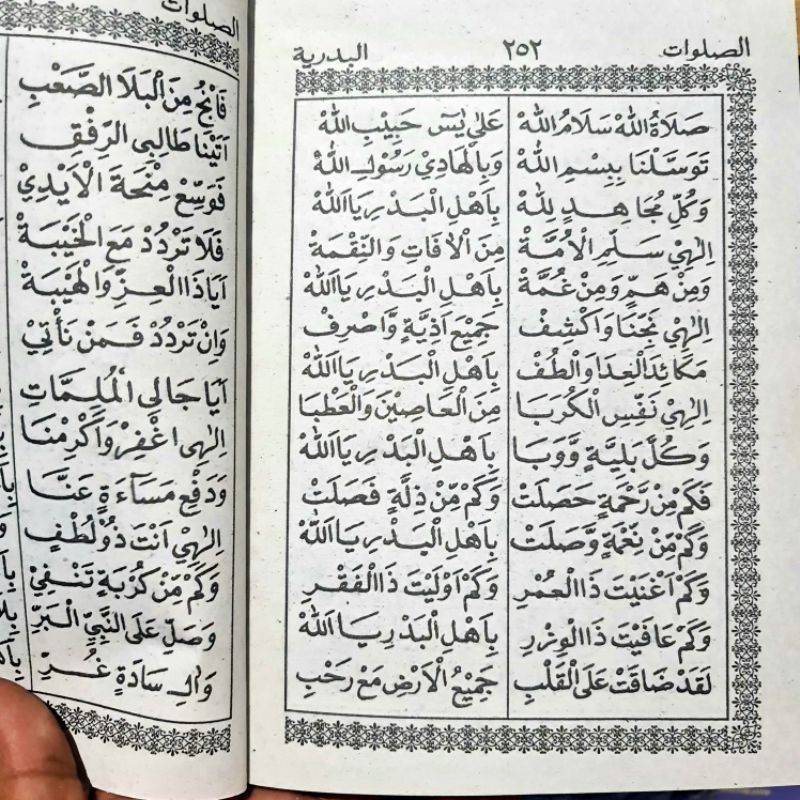 الصلوات ٢٥٢ البدرية
صَلَاةُ اللهْ سَلَامُ اللهْ عَلٰى يٰسٓ حَبِيْبِ اللهْ
تَوَسَّلْنَا بِبِسْمِ اللهْ وَبِالْهَادِيْ رَسُوْلِ اللهْ
وَكُلِّ مُجَاهِدٍ لِلهْ بِاَهْلِ الْبَدْرِ يَا اَللهْ
اِلٰهِيْ سَلِّمِ الْاُمَّةْ مِنَ الْاٰفَاتِ وَالنِّقْمَةْ
وَمِنْ هَمٍّ وَمِنْ غُمَّةْ بِاَهْلِ الْبَدْرِ يَا اَللهْ
اِلٰهِيْ نَجِّنَا وَاكْشِفْ جَمِيْعَ اَذِيَّةٍ وَّاصْرِفْ
مَكَائِدَ الْعِدَا وَالْطُفْ بِاَهْلِ الْبَدْرِ يَا اَللهْ
اِلٰهِيْ نَفِّسِ الْكُرَبَا مِنَ الْعَاصِيْنَ وَالْعَطْبَا
وَكُلَّ بَلِيَّةٍ وَّوَبَا بِاَهْلِ الْبَدْرِ يَا اَللهْ
فَكَمْ مِّنْ رَحْمَةٍ حَصَلَتْ وَكَمْ مِّنْ ذِلَّةٍ فَصَلَتْ
وَكَمْ مِّنْ نِعْمَةٍ وَّصَلَتْ بِاَهْلِ الْبَدْرِ يَا اَللهْ
وَكَمْ اَغْنَيْتَ ذَا الْعُمْرِ وَكَمْ اَوْلَيْتَ ذَا الْفَقْرِ
وَكَمْ عَافَيْتَ ذَا الْوِزْرِ بِاَهْلِ الْبَدْرِ يَا اَللهْ
لَقَدْ ضَاقَتْ عَلَى الْقَلْبِ جَمِيْعُ الْاَرْضِ مَعْ رَحْبِ
الصلوات
فَانْجُ مِنَ الْبَلَا الصَّعْبِ
اَتَيْنَا طَالِبِى الرِّفْقِ
فَوَسِّعْ مِنْحَةَ الْاَيْدِيْ
فَلَا تَرْدُدْ مَعَ الْخَيْبَةْ
اَيَا ذَا الْعِزِّ وَالْهَيْبَةْ
وَاِنْ تَرْدُدْ فَمَنْ نَأْتِيْ
اَيَا جَالِى الْمُلِمَّاتِ
اِلٰهِى اغْفِرْ وَاَكْرِمْنَا
وَدَفْعِ مَسَاءَةٍ عَنَّا
اِلٰهِيْ اَنْتَ ذُوْ لُطْفٍ
وَكَمْ مِّنْ كُرْبَةٍ تَنْفِيْ
وَصَلِّ عَلَى النَّبِيِّ الْبَرِّ
وَاٰلِ سَادَةٍ غُرِّ